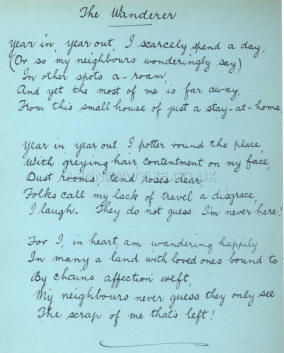 The Wanderer
Year in, year out, I scarcely spend a day,
(Or so my neighbours wonderingly say)
In other spots a-roam,
And yet the most of me is far away,
From this small house of just a stay-at-home.
Year in year out I potter round the place,
With greying hair contentment on my face,
Dust rooms, tend roses dear,
Folks call my lack of travel a disgrace,
I laugh. They do not guess I'm never here!
For I, in heart, am wandering happily
In many a land with loved ones bound to
By chains affection weft,
My neighbours never guess they only see
The scrap of me that's left!